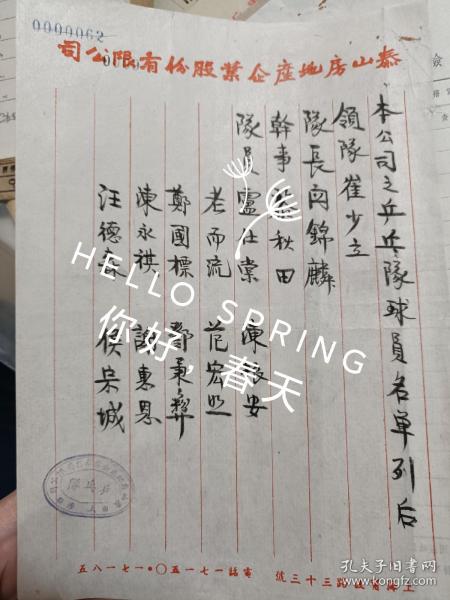 0000062
泰山房地產企業股份有限公司
本公司之乒乓隊球員名單列后
領隊崔少立
隊長 錦麟
幹事 秋田
隊員盧仕棠 陳 安
老而流 范宏照
鄭國標 鄭秉彝
陳永祺 謝惠恩
汪德森 侯宗城
HELLO SPRING
你好,春天
上海 路三十三號 電話一七一五〇·一七一八五
孔夫子旧书网